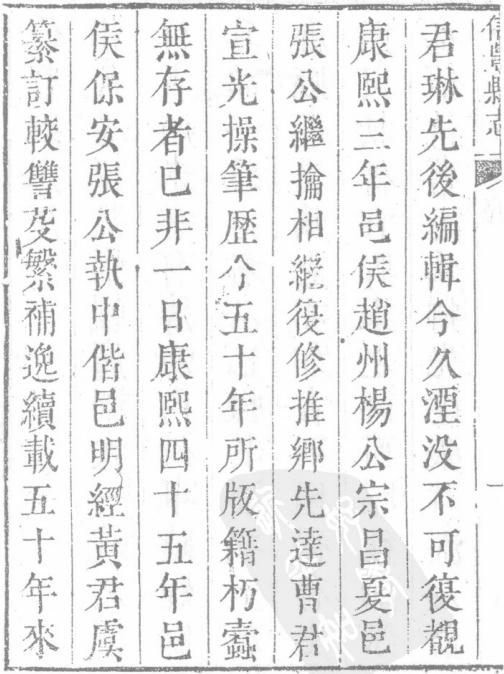 信豐縣志
一
君琳先後編輯今久湮没不可復覩
康熙三年邑侯趙州楊公宗昌夏邑
張公繼掄相繼復修推鄉先達曹君
宣光操筆歷今五十年所版籍朽蠹
無存者已非一日康熙四十五年邑
侯保安張公執中偕邑明經黃君虞
纂訂較讐芟繁補逸續載五十年來